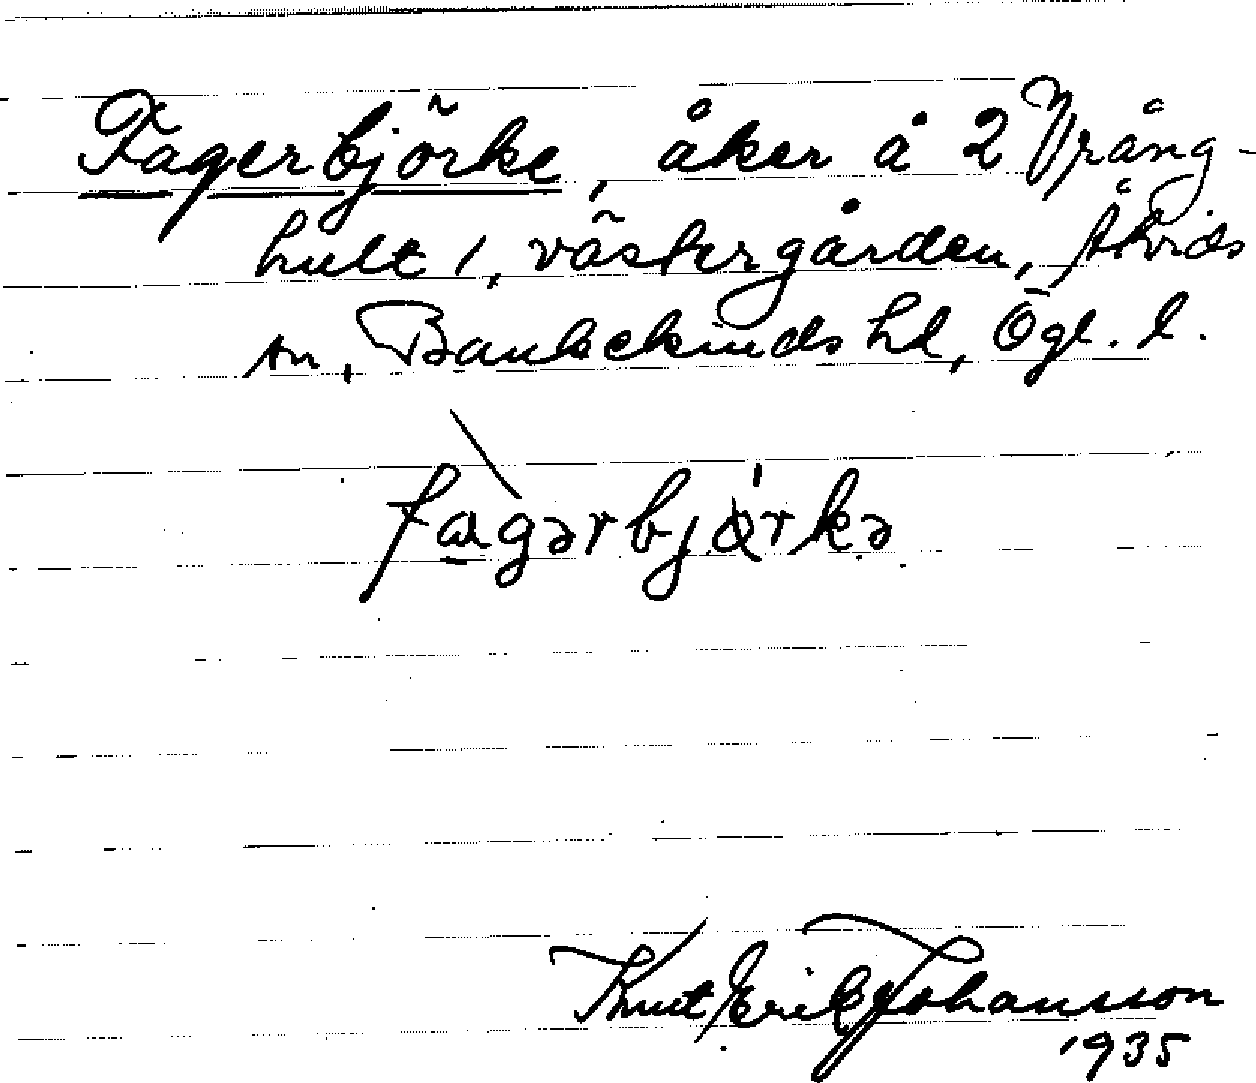 Fagerbjörke, åker å 2 Vrång-
hult 1, västergården, Åtvids
sn, Bankekinds hd, Ögl. l.
fàgərbjǿrkə
Knut Erik Johansson
1935